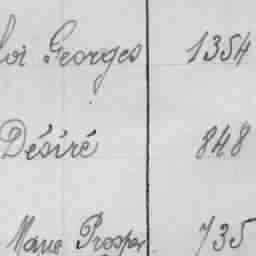 Georges 1354
Désiré 848
Marie Prosper 735